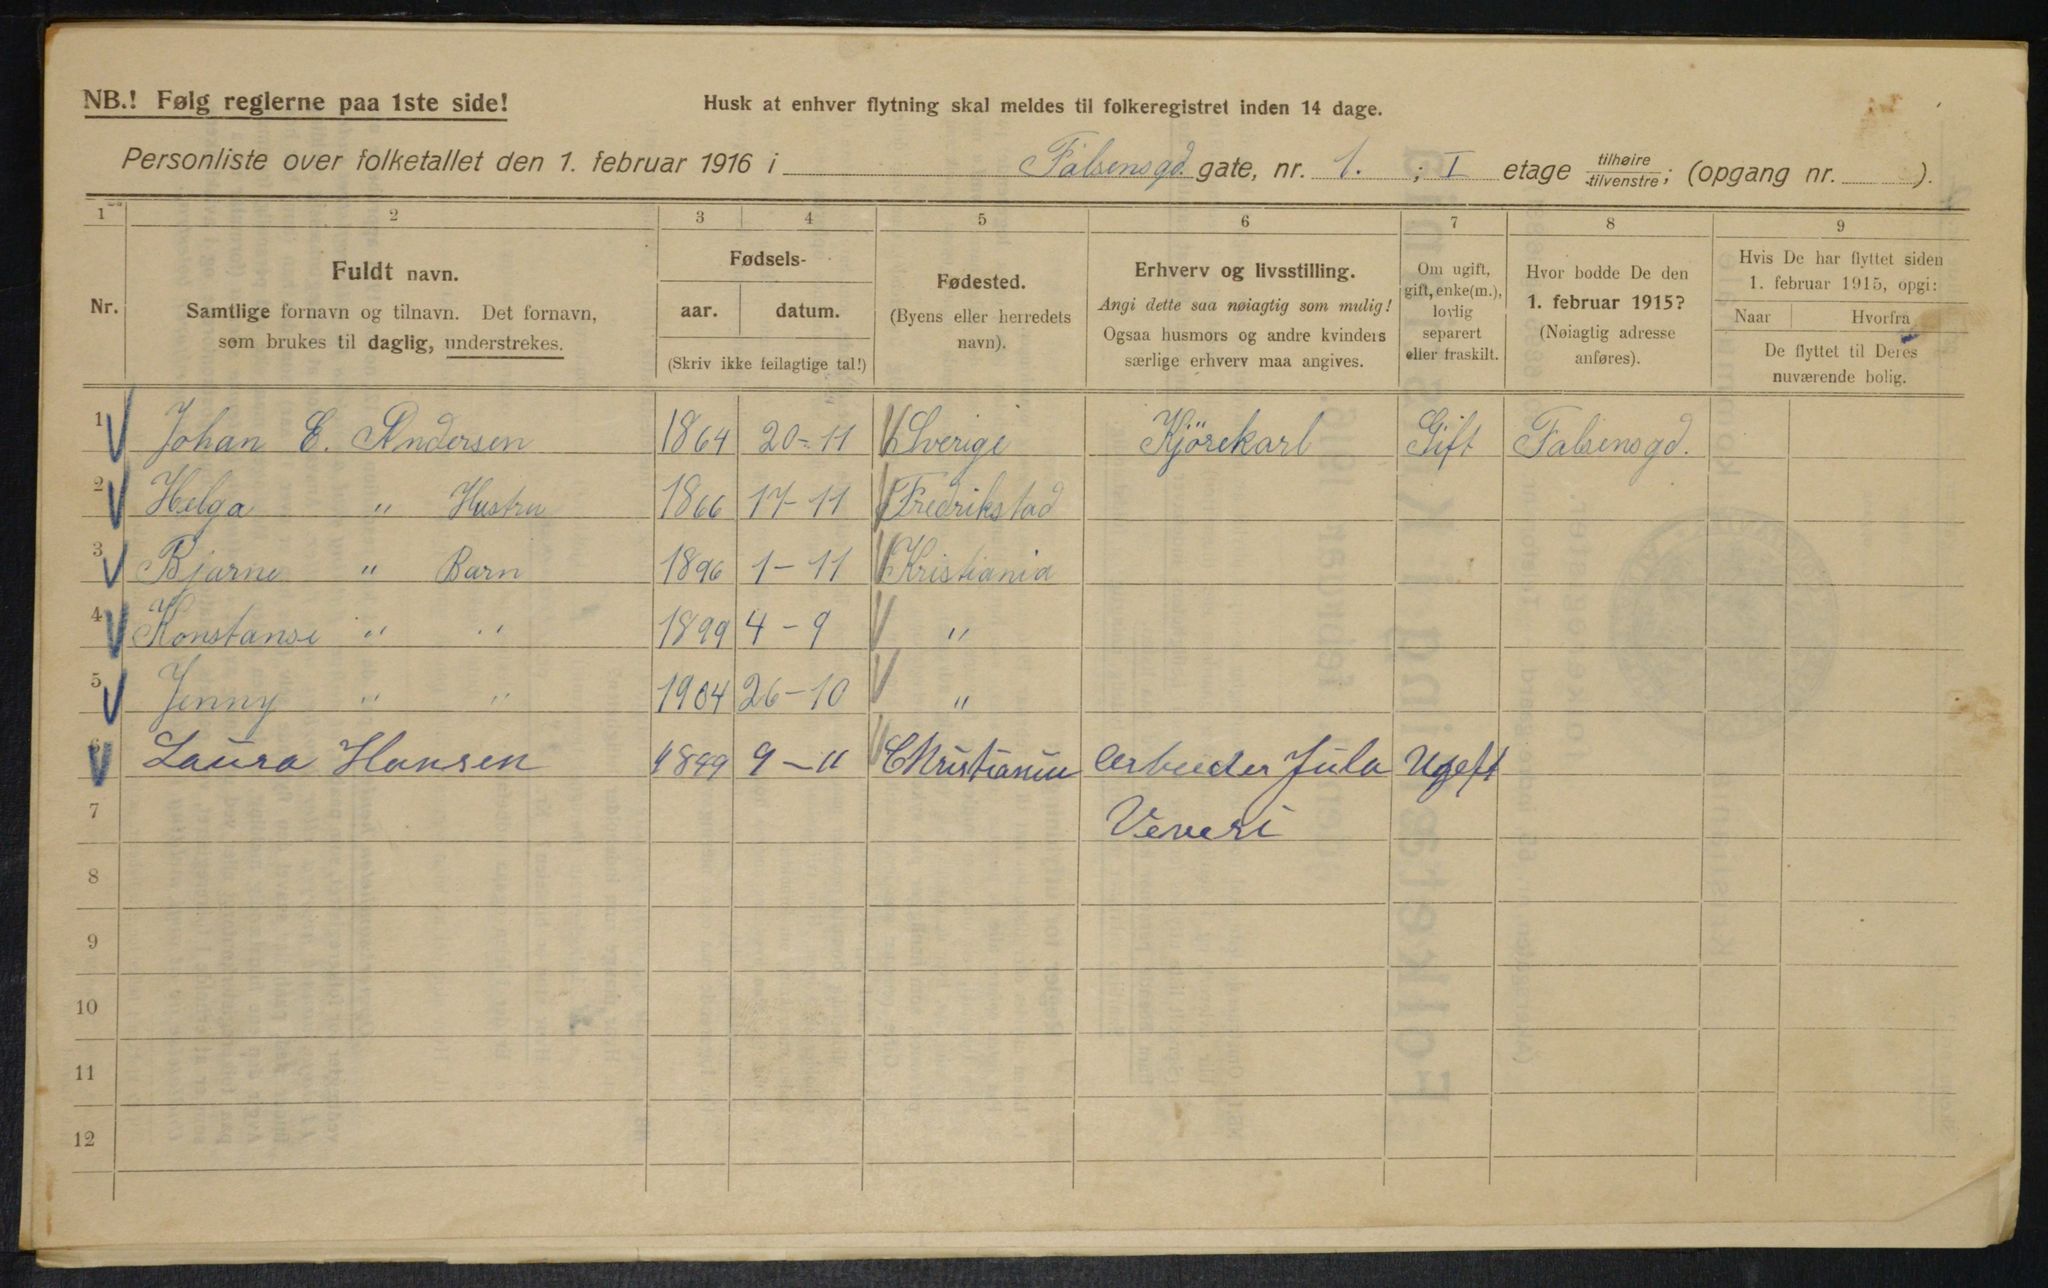 NB.! Følg reglerne paa 1ste side!
Husk at enhver flytning skal meldes til folkeregistret inden 14 dage.
Personliste over folketallet den 1. februar 1916 i Falsensgd. gate, nr. 1. ; I etage tilhøire/tilvenstre; (opgang nr. ).
1 2 3 4 5 6 7 8 9
Nr.
Fuldt navn.
Samtlige fornavn og tilnavn. Det fornavn,
som brukes til daglig, understrekes.
Fødsels-
aar. datum.
(Skriv ikke feilagtige tal!)
Fødested.
(Byens eller herredets
navn).
Erhverv og livsstilling.
Angi dette saa nøiagtig som mulig!
Ogsaa husmors og andre kvinders
særlige erhverv maa angives.
Om ugift,
gift, enke(m.),
lovlig
separert
eller fraskilt.
Hvor bodde De den
1. februar 1915?
(Nøiagtig adresse
anføres).
Hvis De har flyttet siden
1. februar 1915, opgi:
Naar Hvorfra
De flyttet til Deres
nuværende bolig.
1 Johan E. Andersen 1864 20-11 Sverige Kjörekarl Gift Falsensgd.
2 Helga " Hustru 1866 17-11 Fredrikstad
3 Bjarne " Barn 1896 1-11 Kristiania
4 Konstanse " " 1899 4-9 "
5 Jenny " " 1904 26-10 "
6 Laura Hansen 1899 9-11 Christianiu Arbeider Jula Ugeft
7 Veveri
8
9
10
11
12